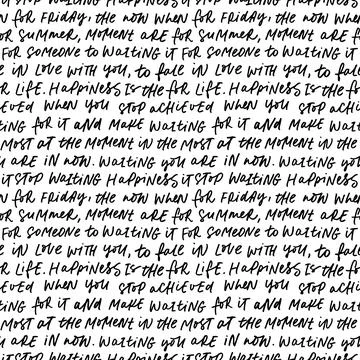 it stop waiting Happiness it stop waiting Happiness
for Friday, the now when for Friday, the now whe
or summer, moment are for summer, moment are f
for someone to waiting it for someone to waiting it
e in love with you, to fall in love with you, to fall
r life. Happiness is the for life. Happiness is the
ieved when you stop achieved when you stop achi
ting for it and make waiting for it and make waiti
most at the moment in the most at the moment in
u are in now. waiting you are in now. waiting you
it stop waiting Happiness it stop waiting Happiness
for Friday, the now when for Friday, the now whe
or summer, moment are for summer, moment are f
for someone to waiting it for someone to waiting it
e in love with you, to fall in love with you, to fall
r life. Happiness is the for life. Happiness is the
ieved when you stop achieved when you stop achi
ting for it and make waiting for it and make waiti
most at the moment in the most at the moment in
u are in now. waiting you are in now. waiting you
it stop waiting Happiness it stop waiting Happiness